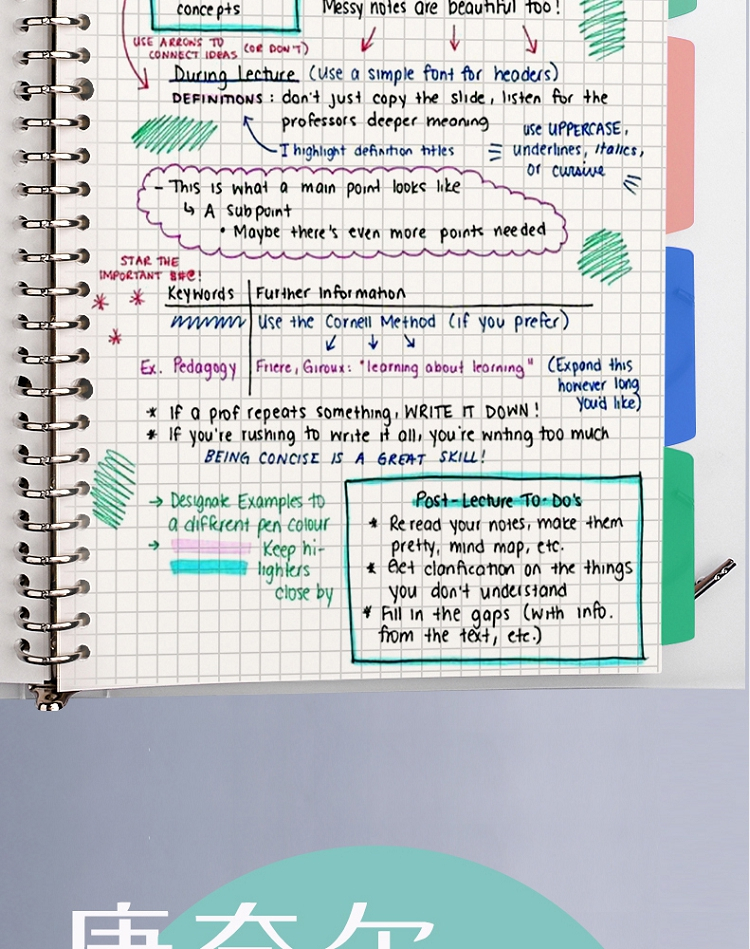 concepts
Messy notes are beautiful too!
USE ARROWS TO
CONNECT IDEAS (OR DON'T)
During Lecture (Use a simple font for headers)
DEFINITIONS: don't just copy the slide, listen for the
professors deeper meaning
I highlight definition titles
use UPPERCASE,
underlines, italics,
or cursive
- This is what a main point looks like
↳ A subpoint
• Maybe there's even more points needed
STAR THE
IMPORTANT $#@!
Keywords Further Information
Use the Cornell Method (if you prefer)
Ex. Pedagogy Friere, Giroux: "learning about learning"
(Expand this
however long
you'd like)
* If a prof repeats something, WRITE IT DOWN!
* If you're rushing to write it all, you're writing too much
BEING CONCISE IS A GREAT SKILL!
→ Designate Examples to
a different pen colour
→ Keep hi-
lighters
close by
Post-Lecture To-Do's
* Reread your notes, make them
pretty, mind map, etc.
* Get clarification on the things
you don't understand
* Fill in the gaps (with info.
from the text, etc.)